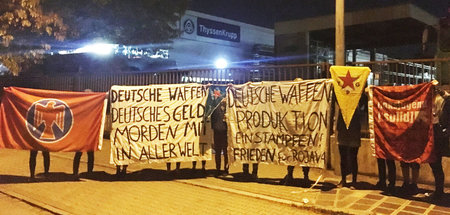 ThyssenKrupp
DEUTSCHE WAFFEN
DEUTSCHES GELD
MORDEN MIT
IN ALLER WELT
DEUTSCHE WAFFEN
PRODUKTION
EINSTAMPFEN
FRIEDEN für ROJAVA